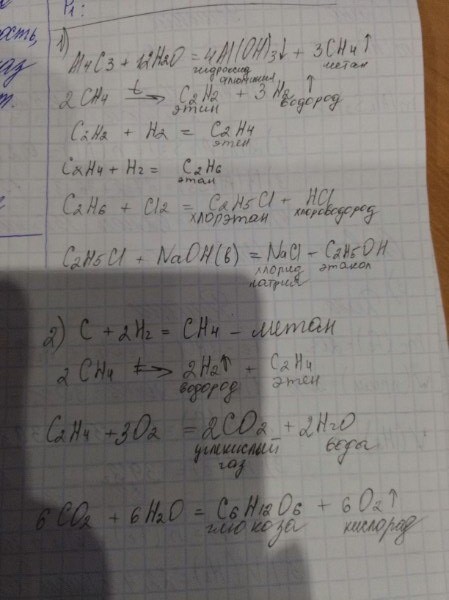 ость,
аз
т.
P1:
1) Al4C3 + 12H2O = 4Al(OH)3↓ + 3CH4↑
гидроксид алюминия метан
2CH4 t→ C2H2 + 3H2↑
этин водород
C2H2 + H2 = C2H4
этен
C2H4 + H2 = C2H6
этан
C2H6 + Cl2 = C2H5Cl + HCl
хлорэтан хлороводород
C2H5Cl + NaOH(в) = NaCl – C2H5OH
хлорид натрия этанол
2) C + 2H2 = CH4 – метан
2CH4 t→ 2H2↑ + C2H4
водород этен
C2H4 + 3O2 = 2CO2 + 2H2O
углекислый газ воды
6CO2 + 6H2O = C6H12O6 + 6O2↑
глюкоза кислород